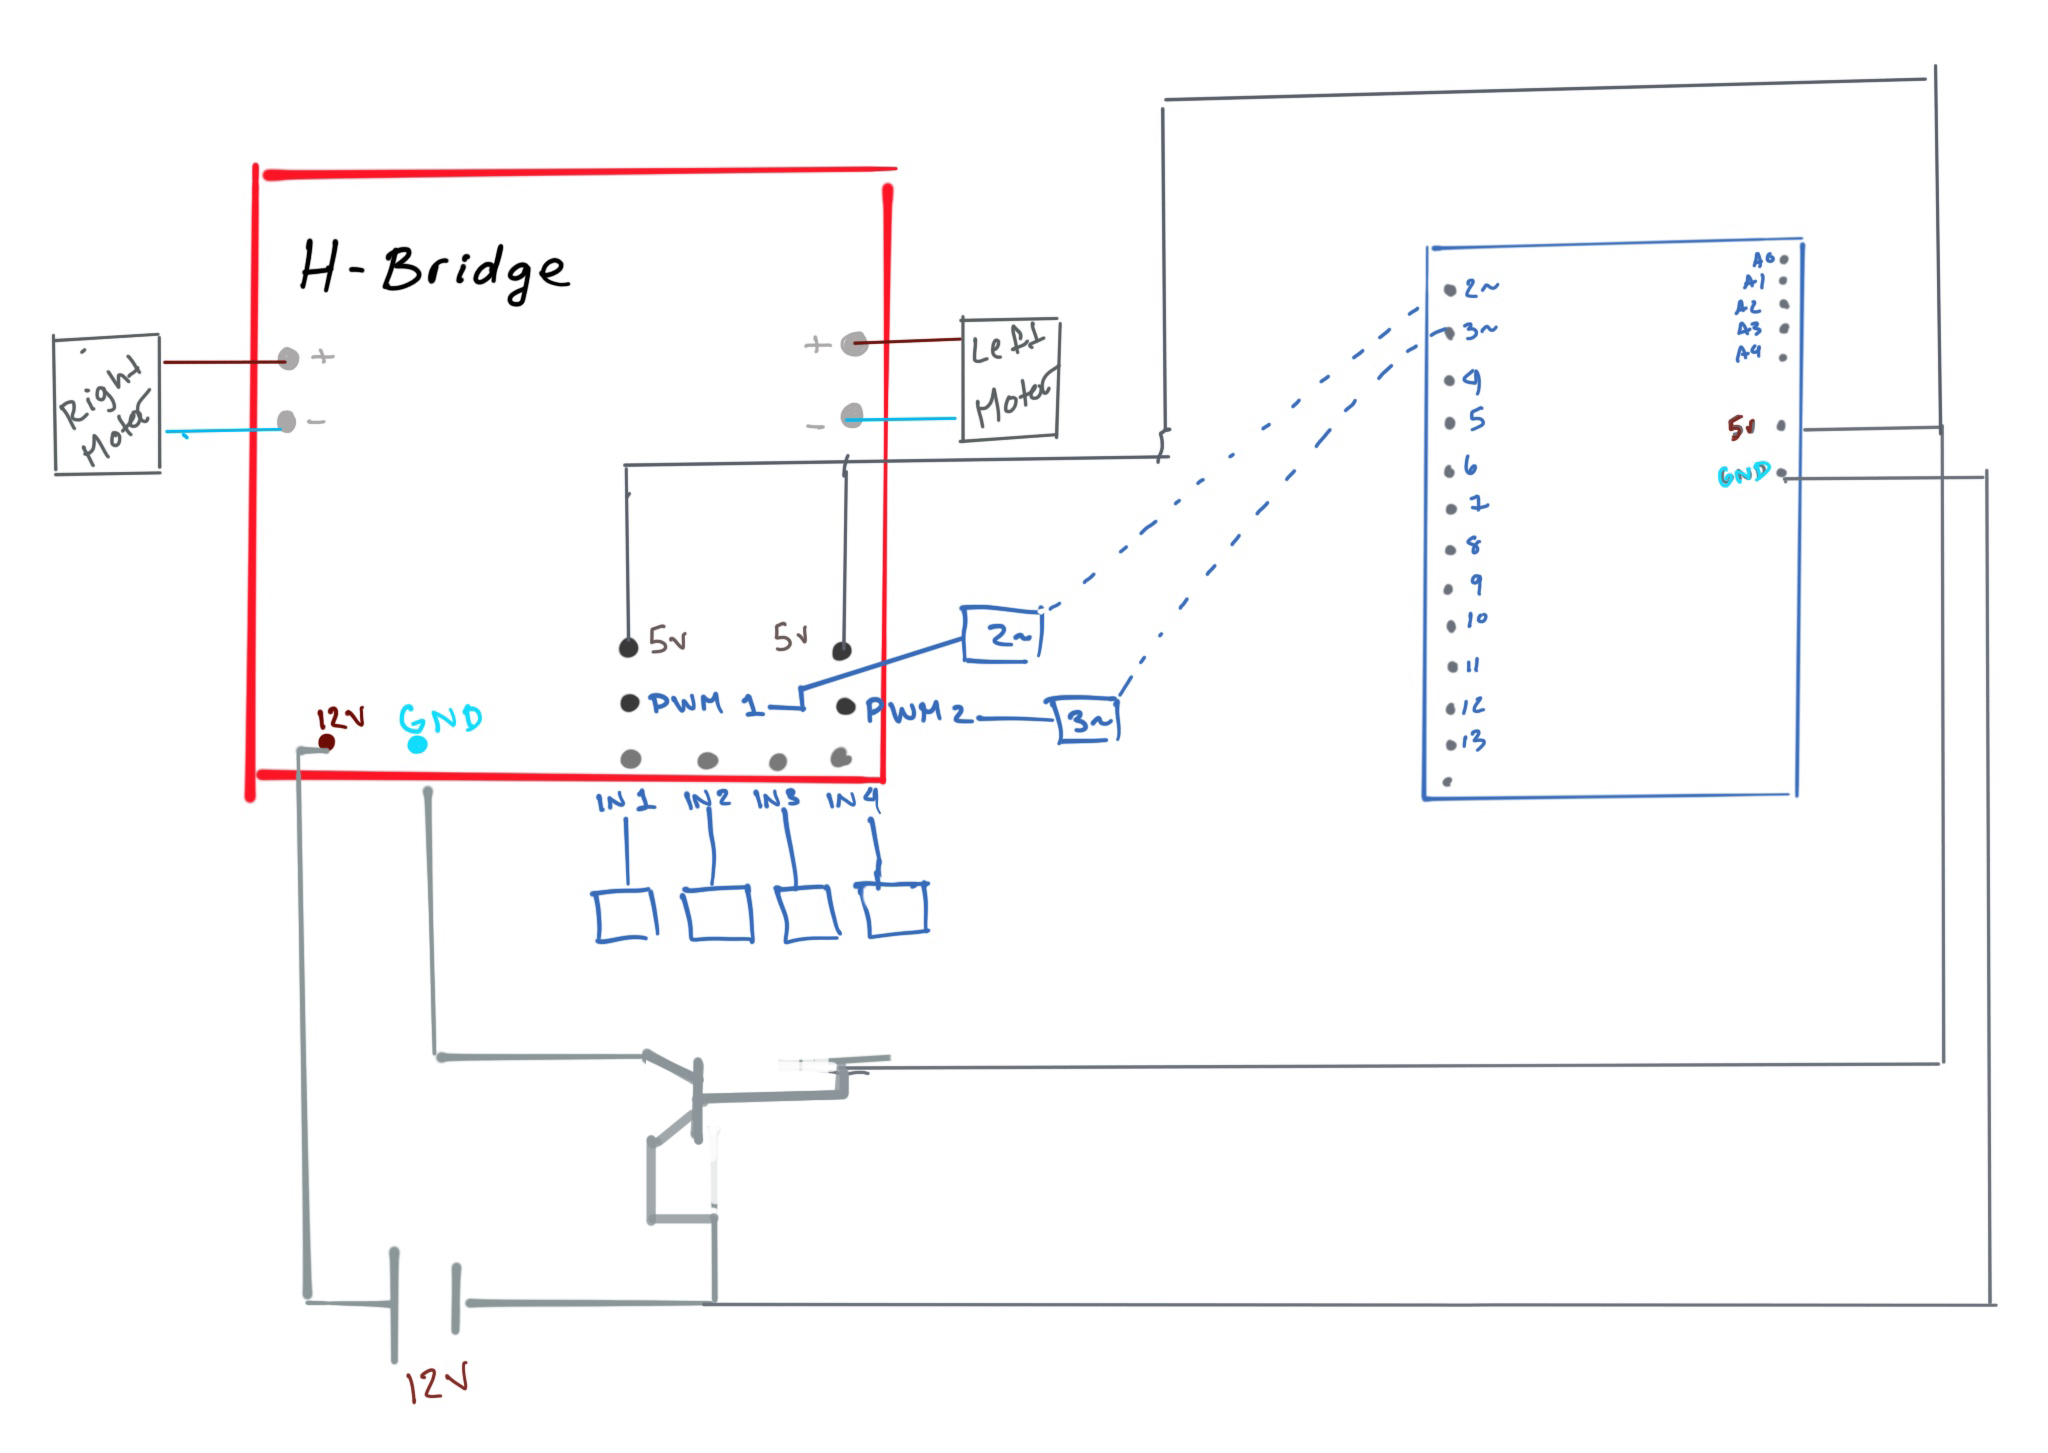 H-Bridge
Right
Motor
+
-
+
-
Left
Motor
5v
5v
PWM 1
PWM 2
2~
3~
12V
GND
IN 1
IN 2
IN 3
IN 4
12V
2~
3~
4
5
6
7
8
9
10
11
12
13
A0
A1
A2
A3
A4
5v
GND